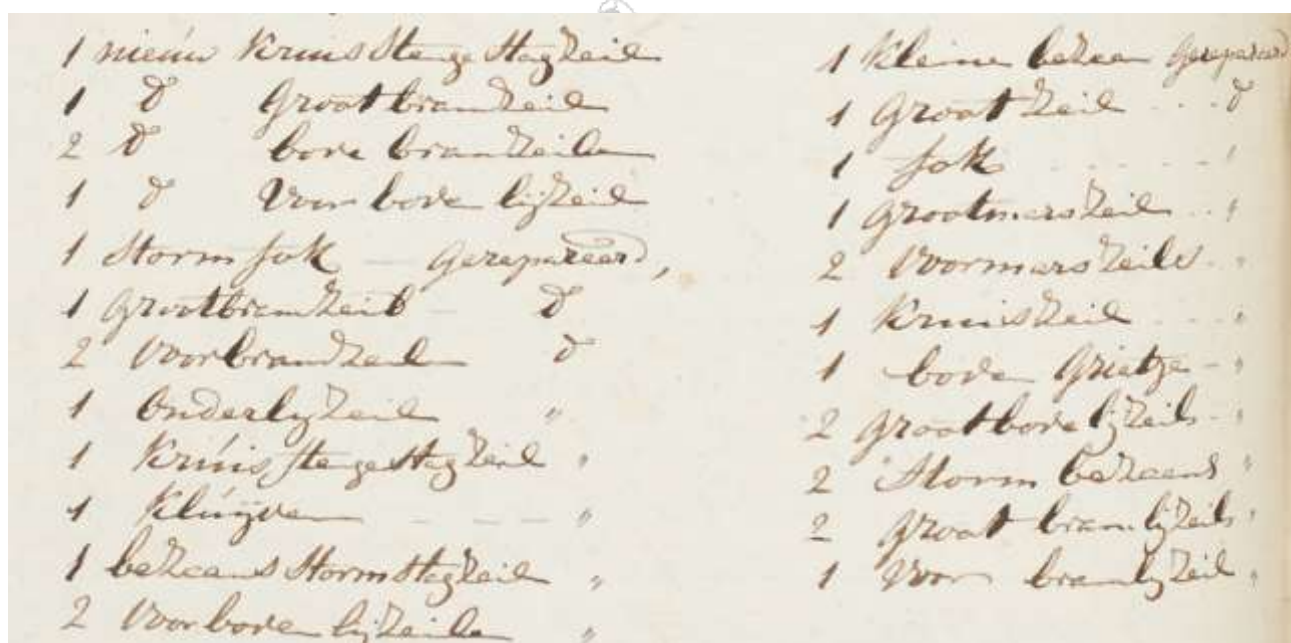 1 nieuw Kruis Stenge Stagzeil
1 do Grootbramzeil
2 do bove bramzeile
1 do Voor bove lijzeil
1 Storm fok — Gerepareerd,
1 Grootbramzeil — do
2 Voorbramzeile do
1 Onderlyzeil "
1 Kruis stenge Stagzeil "
1 Kluijver — — — "
1 bezaans Storm Stagzeil "
2 Voorboven lijzeile "
1 Kleine bezaan Gerepareerd
1 Groot zeil . . . do
1 fok - - - - - "
1 Grootmarszeil . . "
2 Voormarszeils - "
1 Kruiszeil - - - "
1 bove Grietje - "
2 Grootbove lijzeils - "
2 Storm bezaans "
2 Groot bramlijzeils "
1 Voor bramlyzeil "